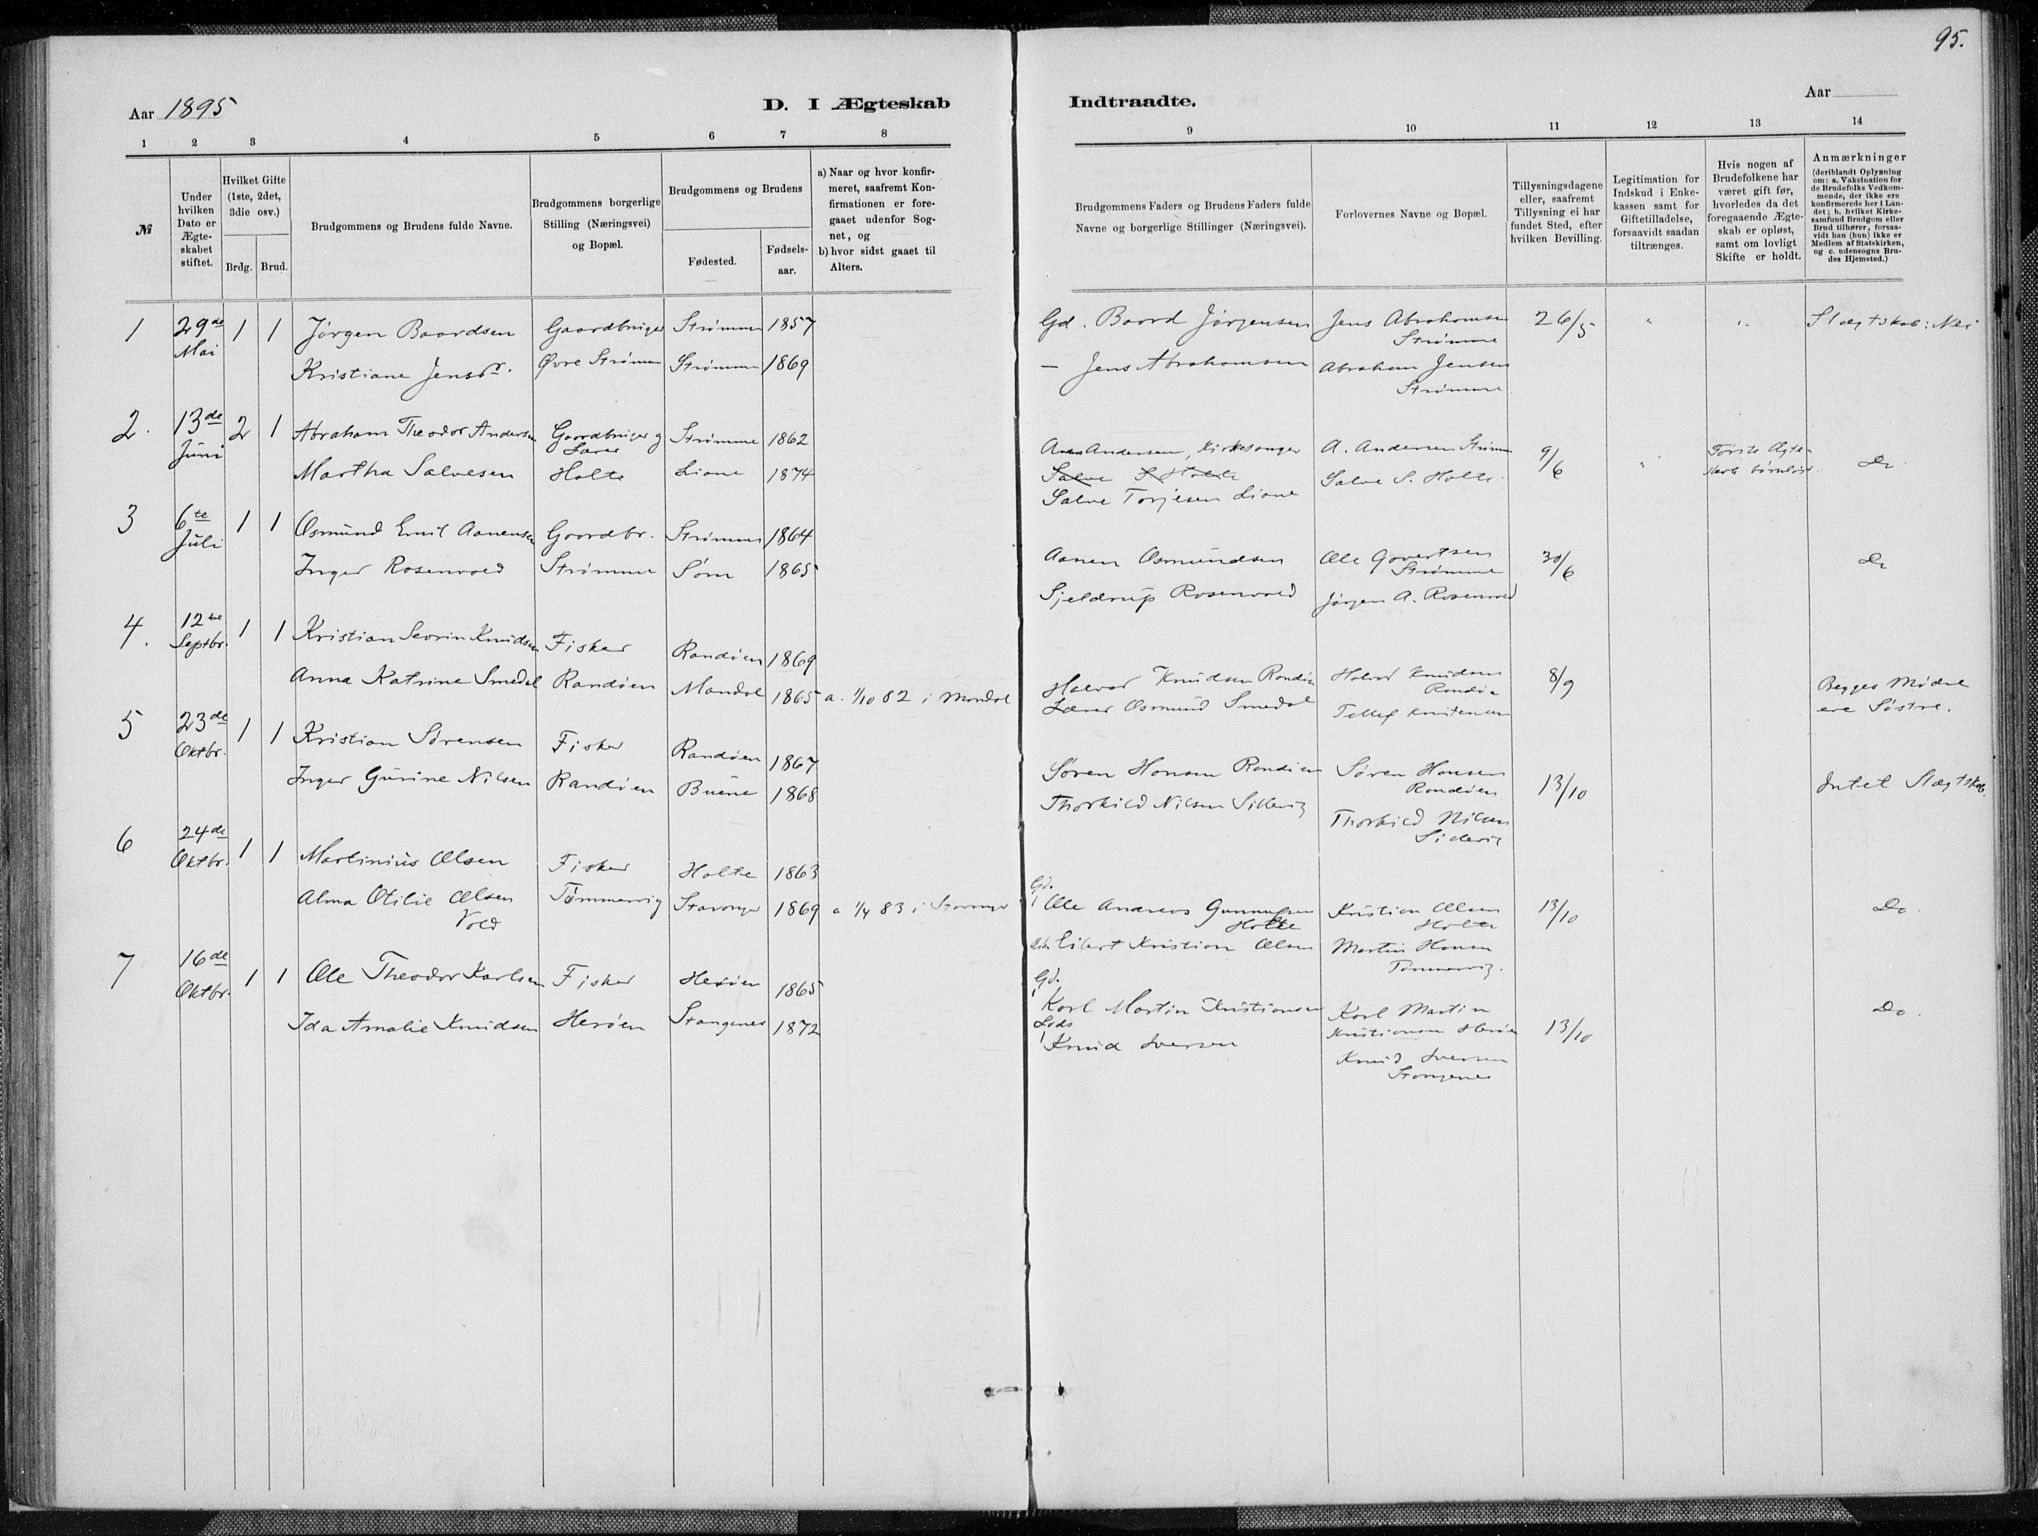 95.
Aar 1895
D. I Ægteskab
Indtraadte.
Aar
1 2 3 4 5 6 7 8
9 10 11 12 13 14
№
Under hvilken Dato er Ægteskabet stiftet.
Hvilket Gifte (1ste, 2det, 3die osv.)
Brdg. Brud.
Brudgommens og Brudens fulde Navne.
Brudgommens borgerlige Stilling (Næringsvei) og Bopæl.
Brudgommens og Brudens
Fødested.
Fødselsaar.
a) Naar og hvor konfirmeret, saafremt Konfirmationen er foregaaet udenfor Sognet, og
b) hvor sidst gaaet til Alters.
Brudgommens Faders og Brudens Faders fulde Navne og borgerlige Stillinger (Næringsvei).
Forlovernes Navne og Bopæl.
Tillysningsdagene eller, saafremt Tillysning ei har fundet Sted, efter hvilken Bevilling.
Legitimation for Indskud i Enkekassen samt for Giftetilladelse, forsaavidt saadan tiltrænges.
Hvis nogen af Brudefolkene har været gift før, hvorledes da det foregaaende Ægteskab er opløst, samt om lovligt Skifte er holdt.
Anmærkninger (deriblandt Oplysning om: a. Vakcination for de Brudefolks Vedkommende, der ikke ere konfirmerede her i Landet; b. hvilket Kirkesamfund Brudgom eller Brud tilhører, forsaavidt han (hun) ikke er Medlem af Statskirken, og c. udensogns Brudes Hjemsted.)
1 29de Mai 1 1 Jørgen Baardsen Gaardbruger Strømme 1857 Gd. Baard Jørgensen Jens Abrahamsen Strømme 26/5 " " Slægtskab: Nei
Kristiane Jensdr. Øvre Strømme Strømme 1869 — Jens Abrahamsen Abraham Jensen Strømme
2. 13de Juni 2 1 Abraham Theodor Andersen Gaardbruger og Lærer Strømme 1862 Andersen, Kirkesanger A. Andersen Strømme 9/6 " Første Ægteskab børnløst. Do
Martha Salvesen Holte Liane 1874 Salve Torjesen Liane Salve S. Holte.
3 6te Juli 1 1 Osmund Emil Aanensen Gaardbr. Strømme 1864 Aanen Osmundsen Ole Govertsen Strømme 30/6 Do
Inger Rosenvold Strømme Søm 1865 Sjeldrup Rosenvold Jørgen A. Rosenvold
4. 12te Septbr. 1 1 Kristian Severin Knudsen Fisker Randøen 1869 Halvor Knudsen Randøen Halvor Knudsen Randøen 8/9 Begges Mødre ere Søstre.
Anna Katrine Smedal Randøen Mandal 1865 a. 1/10 82 i Mandal Lærer Osmund Smedal Tellef Knutsen
5 23de Oktbr. 1 1 Kristian Sørensen Fisker Randøen 1867 Søren Hansen Randøen Søren Hansen Randøen 13/10 Intet Slægtskab.
Inger Gurine Nilsen Randøen Buene 1868 Thorkild Nilsen Sidevig Thorkild Nilsen Sidevig
6 24de Oktbr. 1 1 Martinius Olsen Fisker Holte 1863 Gd. Ole Andreas Gunnufsen Holte Kristian Olsen Holte 13/10 Do.
Alma Otilie Olsen Vold Tømmervig Stavanger 1869 a 1/4 83 i Stavanger Eilert Kristian Olsen Martin Hansen Tømmervig.
7 16de Oktbr. 1 1 Ole Theodor Karlsen Fisker Herøen 1865 Gd. Karl Martin Kristiansen Karl Martin Kristiansen Herøen 13/10 Do.
Ida Amalie Knudsen Herøen Stangenes 1872 Lods Knud Iversen Knud Iversen Stangenes